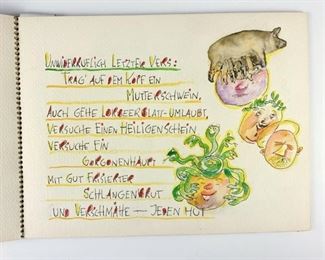 UNWIDERRUFLICH LETZTER VERS:
TRAG' AUF DEM KOPF EIN
MUTTERSCHWEIN,
AUCH GEHE LORBEERBLATT-UMLAUBT,
VERSUCHE EINEN HEILIGENSCHEIN
VERSUCHE EIN
GORGONENHAUPT
MIT GUT FRISIERTER
SCHLANGENBRUT
UND VERSCHMÄHE — JEDEN HUT